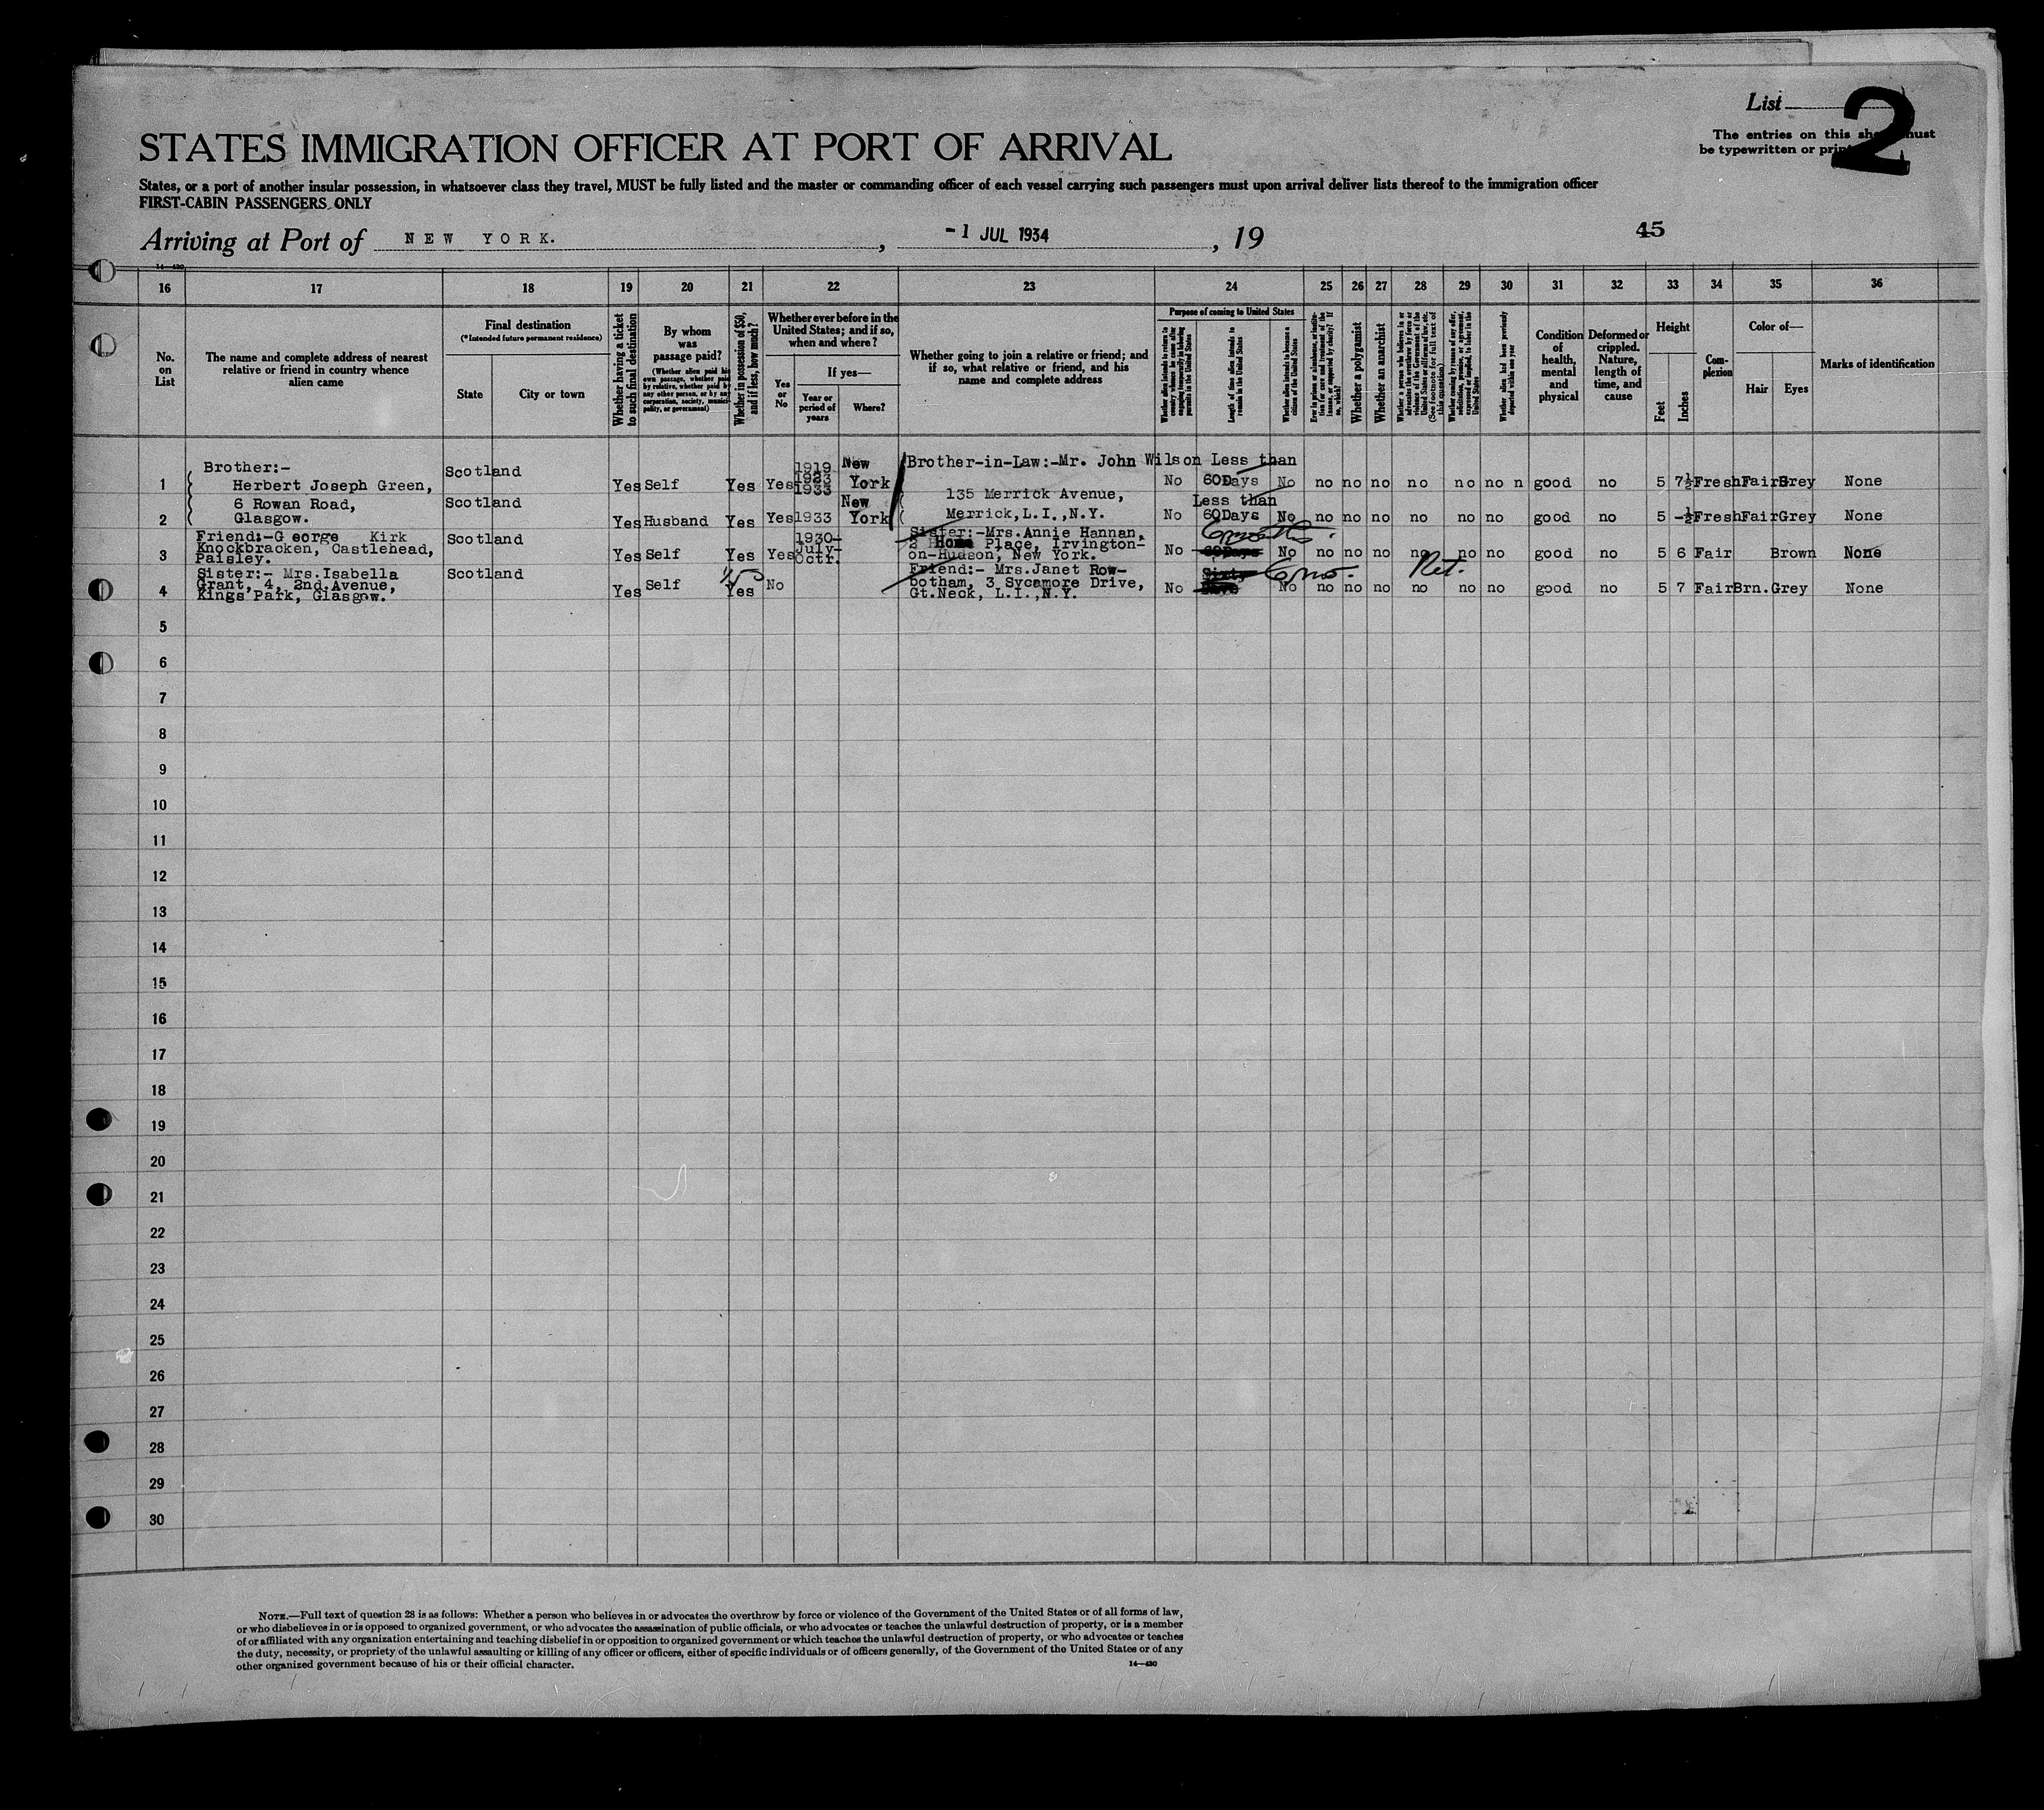 List 2
The entries on this sheet must
be typewritten or printed
STATES IMMIGRATION OFFICER AT PORT OF ARRIVAL
States, or a port of another insular possession, in whatsoever class they travel, MUST be fully listed and the master or commanding officer of each vessel carrying such passengers must upon arrival deliver lists thereof to the immigration officer
FIRST-CABIN PASSENGERS ONLY
Arriving at Port of NEW YORK. , -1 JUL 1934 , 19
45
14-430
16 17 18 19 20 21 22 23 24 25 26 27 28 29 30 31 32 33 34 35 36
No. on List
The name and complete address of nearest relative or friend in country whence alien came
Final destination
(*Intended future permanent residence)
State
City or town
Whether having a ticket to such final destination
By whom was passage paid?
(Whether alien paid his own passage, whether paid by relative, whether paid by any other person, or by any corporation, society, municipality, or government)
Whether in possession of $50, and if less, how much?
Whether ever before in the United States; and if so, when and where?
Yes or No
If yes—
Year or period of years
Where?
Whether going to join a relative or friend; and if so, what relative or friend, and his name and complete address
Purpose of coming to United States
Whether alien intends to return to country whence he came after engaging temporarily in laboring pursuits in the United States
Length of time alien intends to remain in the United States
Whether alien intends to become a citizen of the United States
Ever in prison or almshouse, or institution for care and treatment of the insane, or supported by charity? If so, which?
Whether a polygamist
Whether an anarchist
Whether a person who believes in or advocates the overthrow by force or violence of the Government of the United States or all forms of law, etc. (See footnote for full text of this question)
Whether coming by reason of any offer, solicitation, promise, or agreement, expressed or implied, to labor in the United States
Whether alien had been previously deported within one year
Condition of health, mental and physical
Deformed or crippled. Nature, length of time, and cause
Height
Feet
Inches
Complexion
Color of—
Hair
Eyes
Marks of identification
1 Brother:- Herbert Joseph Green, Scotland Yes Self Yes Yes 1919 1923 1933 New York Brother-in-Law:-Mr. John Wilson No Less than 60Days No no no no no no no n good no 5 7½ Fresh Fair Grey None
2 6 Rowan Road, Glasgow. Scotland Yes Husband Yes Yes 1933 New York 135 Merrick Avenue, Merrick,L.I.,N.Y. No Less than 60Days No no no no no no no good no 5 -½ Fresh Fair Grey None
3 Friend:-G eorge Kirk Knockbracken, Castlehead, Paisley. Scotland Yes Self Yes Yes 1930- July- Octr. Sister:-Mrs.Annie Hannan, 2 Home Place, Irvington-on-Hudson, New York. No 60Days 6 months. No no no no no no no good no 5 6 Fair Brown None
4 Sister:- Mrs.Isabella Grant, 4, 2nd.Avenue, Kings Park, Glasgow. Scotland Yes Self Yes No Friend:- Mrs.Janet Rowbotham, 3 Sycamore Drive, Gt.Neck, L.I.,N.Y. No Sixty Days 6 mo. No no no no Ret. no no no good no 5 7 Fair Brn. Grey None
5
6
7
8
9
10
11
12
13
14
15
16
17
18
19
20
21
22
23
24
25
26
27
28
29
30
NOTE.—Full text of question 28 is as follows: Whether a person who believes in or advocates the overthrow by force or violence of the Government of the United States or of all forms of law,
or who disbelieves in or is opposed to organized government, or who advocates the assassination of public officials, or who advocates or teaches the unlawful destruction of property, or is a member
of or affiliated with any organization entertaining and teaching disbelief in or opposition to organized government or which teaches the unlawful destruction of property, or who advocates or teaches
the duty, necessity, or propriety of the unlawful assaulting or killing of any officer or officers, either of specific individuals or of officers generally, of the Government of the United States or of any
other organized government because of his or their official character.
14—430